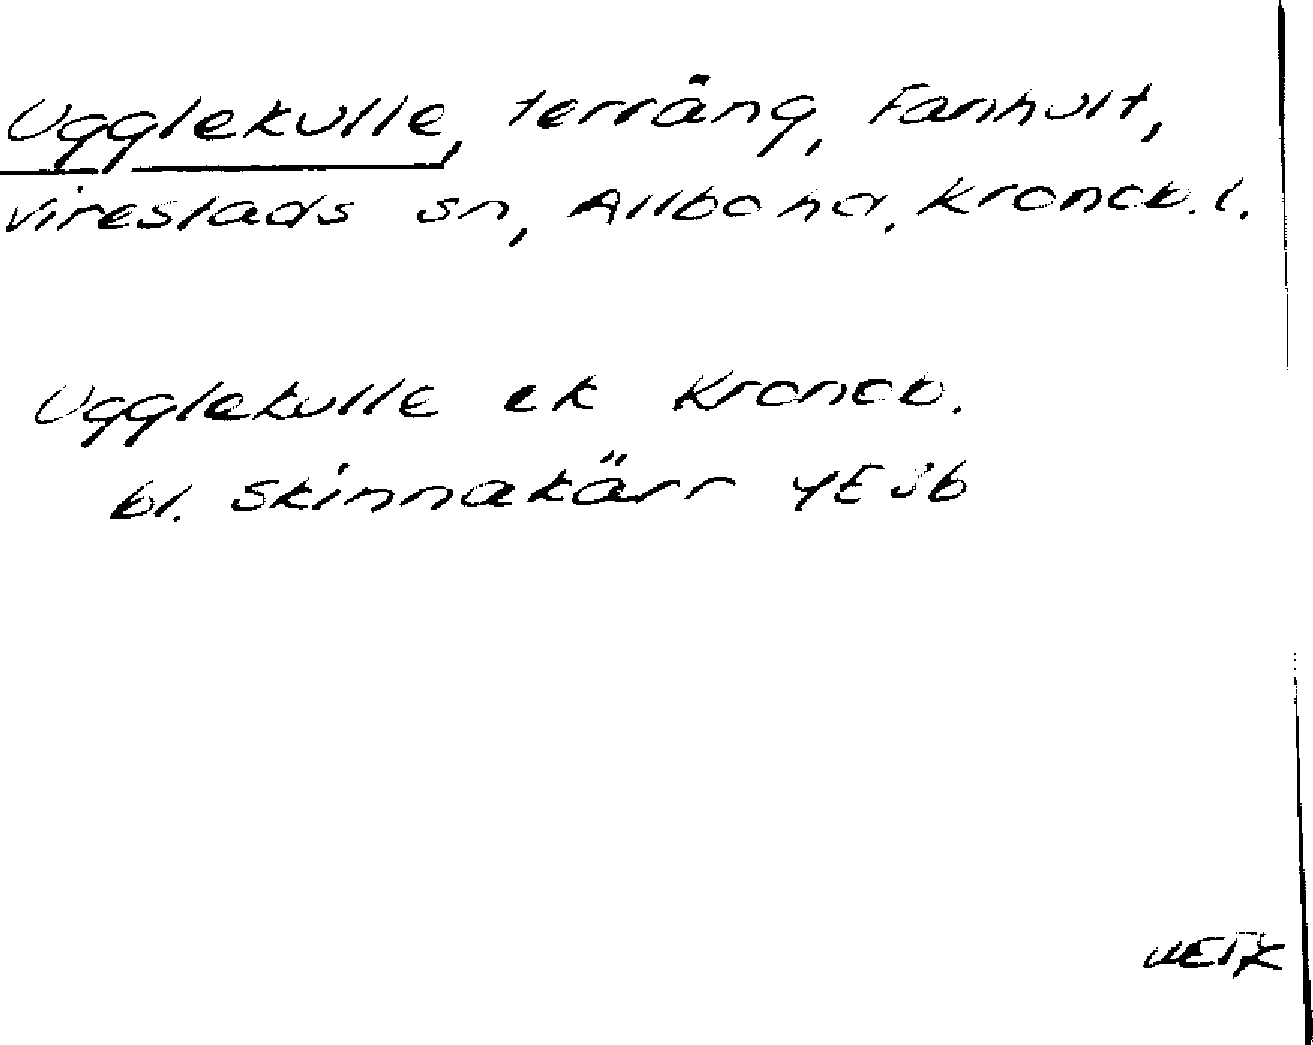 Ugglekulle, terräng, Fanhult,
Virestads sn, Allbo hd. Kronob. l.
Ugglekulle ek Kronob.
bl. Skinnakärr 4E 3b